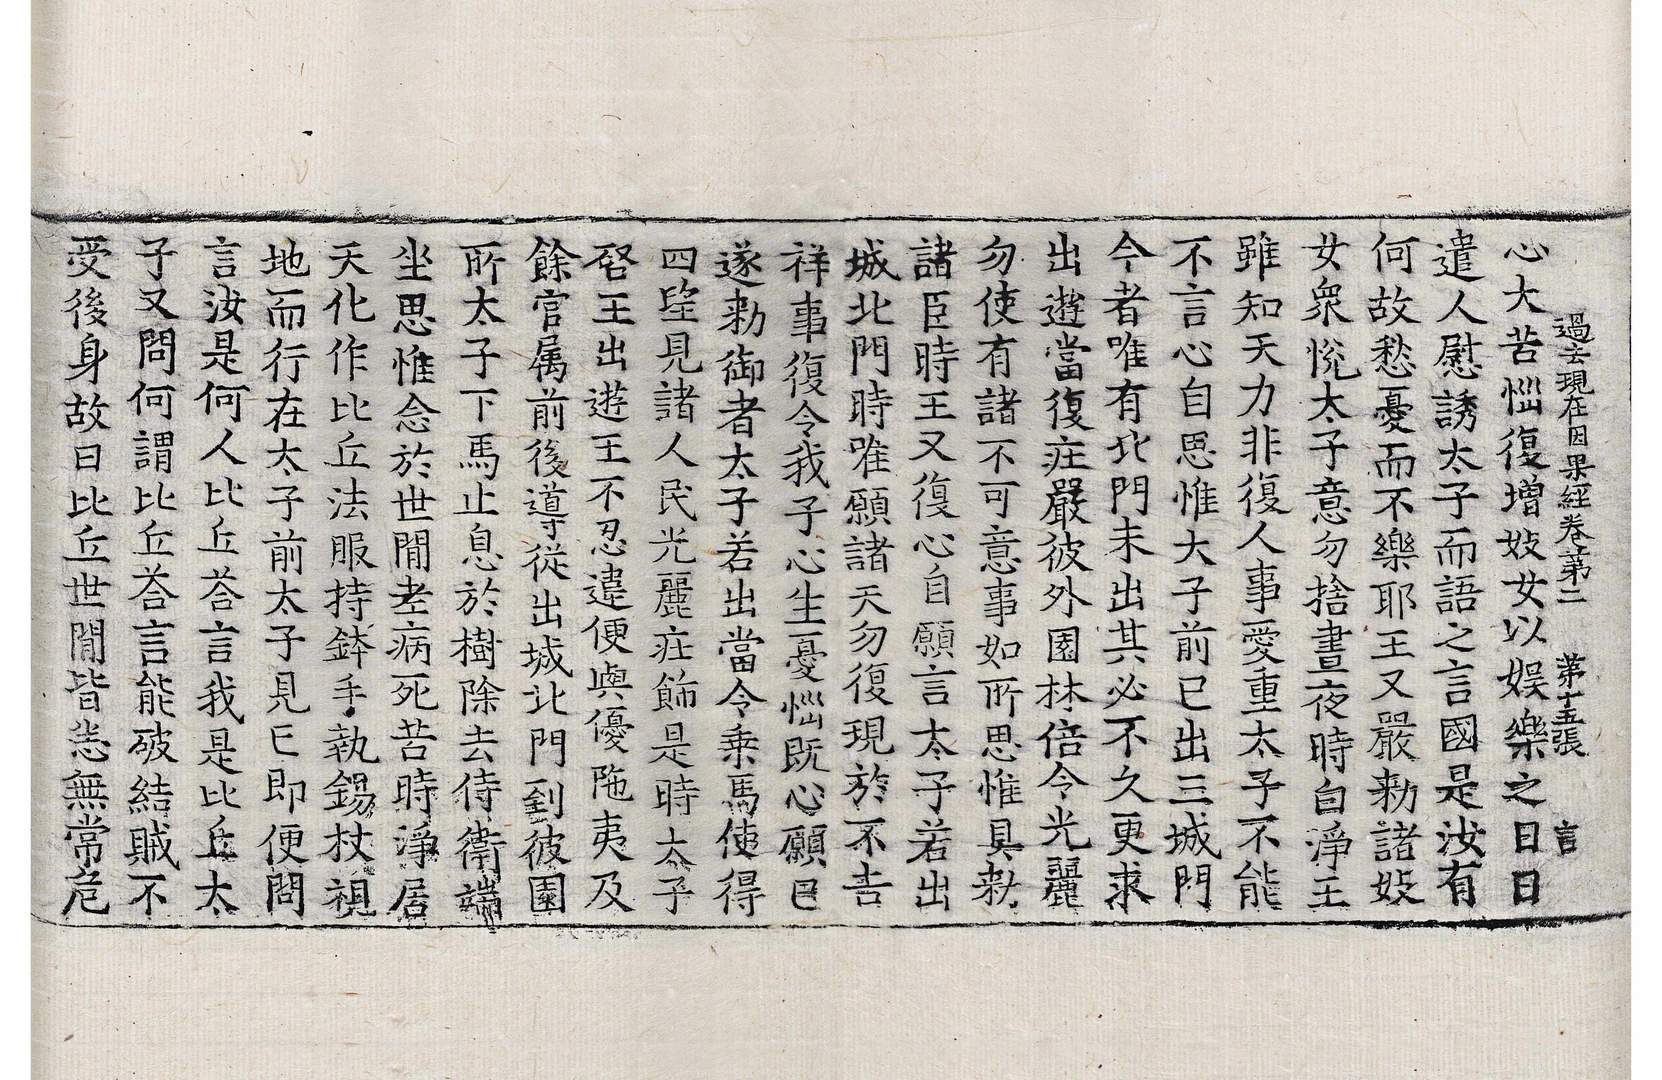 過去現在因果経卷第二 第十五張 言
心大苦惱復增妓女以娛樂之日日
遣人慰誘太子而語之言國是汝有
何故愁憂而不樂耶王又嚴勑諸妓
女衆悅太子意勿捨晝夜時白淨王
雖知天力非復人事愛重太子不能
不言心自思惟大子前已出三城門
今者唯有北門未出其必不久更求
出遊當復莊嚴彼外園林倍令光麗
勿使有諸不可意事如所思惟具勑
諸臣時王又復心自願言太子若出
城北門時唯願諸天勿復現於不吉
祥事復令我子心生憂惱既心願已
遂勑御者太子若出當令乗馬使得
四望見諸人民光麗莊飾是時太子
啓王出遊王不忍違便與優陁夷及
餘官属前後導從出城北門到彼園
所太子下馬止息於樹除去侍衛端
坐思惟念於世閒老病死苦時淨居
天化作比丘法服持鉢手執錫杖視
地而行在太子前太子見已即便問
言汝是何人比丘荅言我是比丘太
子又問何謂比丘荅言能破結賊不
受後身故曰比丘世閒皆悉無常危